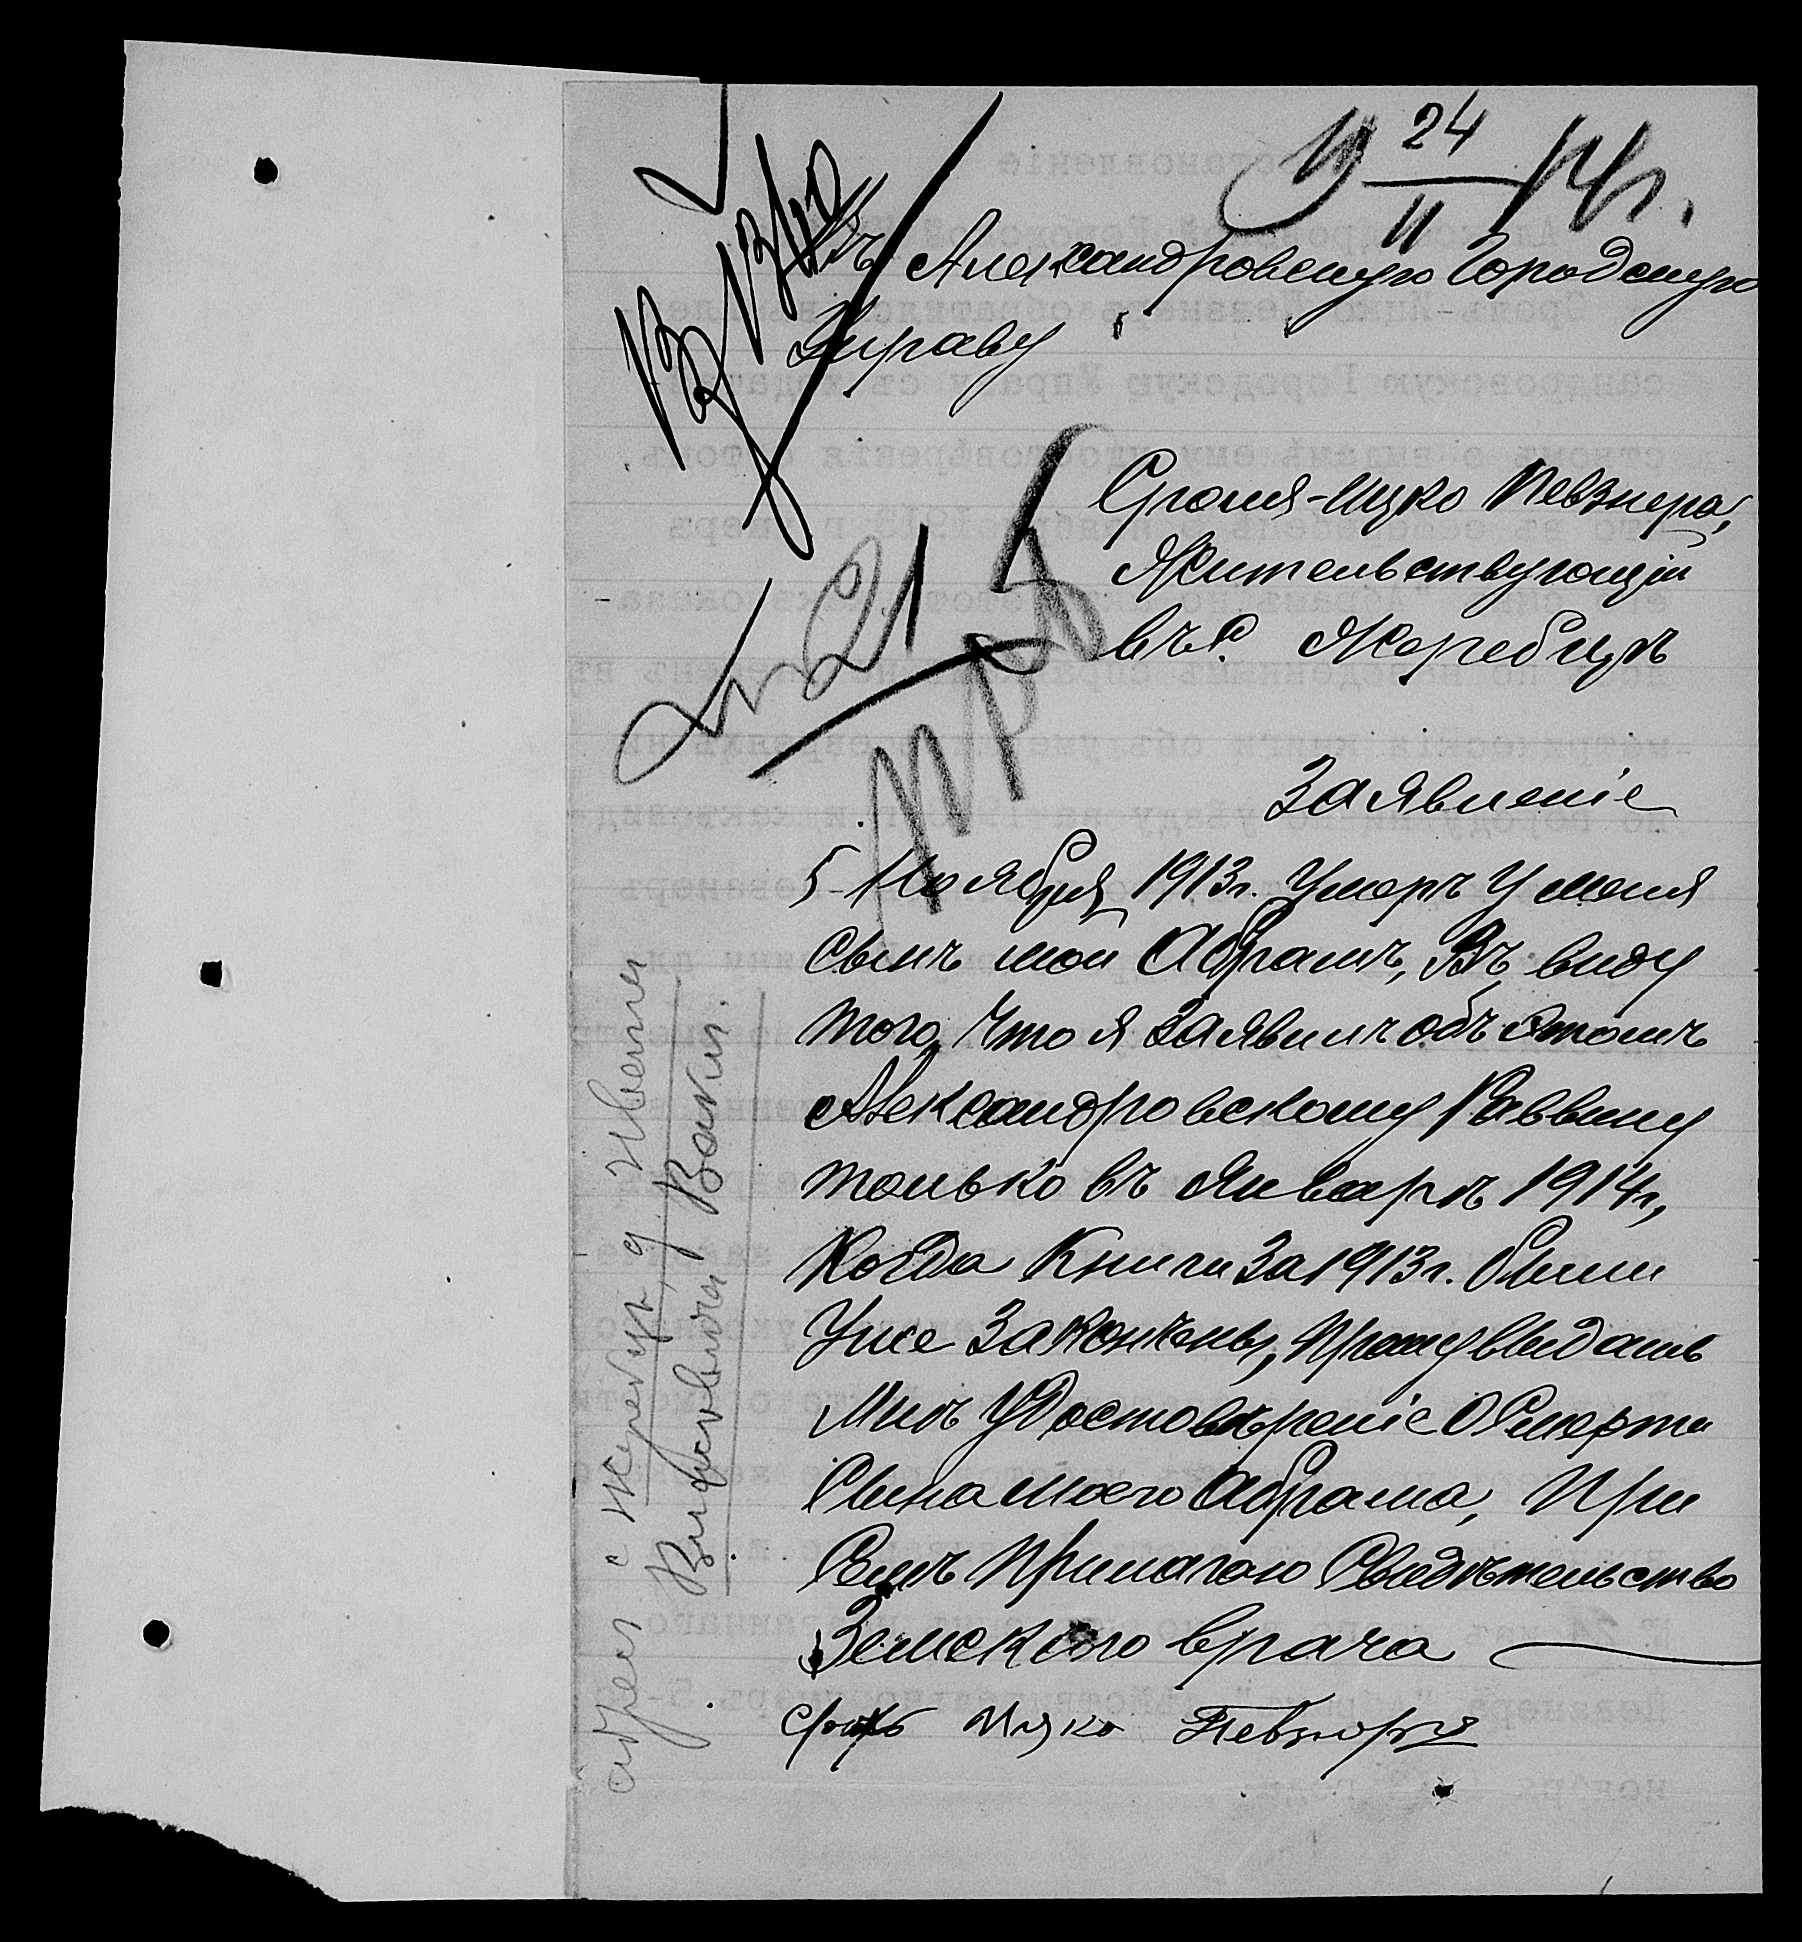 24/II 14 г.
Въ Александровскую Городскую
Управу
Сроля-Ицко Певзнера,
Жительствующій
въ с. Жеребцѣ
№ 21
Заявленіе
5 Ноября 1913 г. Умеръ У меня
Сынъ мой Абрамъ, Въ виду
того, Что я Заявилъ объ Этомъ
Александровскому Раввину
только въ Январѣ 1914 г,
Когда Книги За 1913 г. были
Уже Закончены, Прошу Выдать
Мнѣ Удостовѣреніе О Смерти
Сына моего Абрама, При
Семъ Прилагаю Свидѣтельство
Земского врача
Сроль Ицко Певзнеръ
адрес с Жеребец, д Ивана